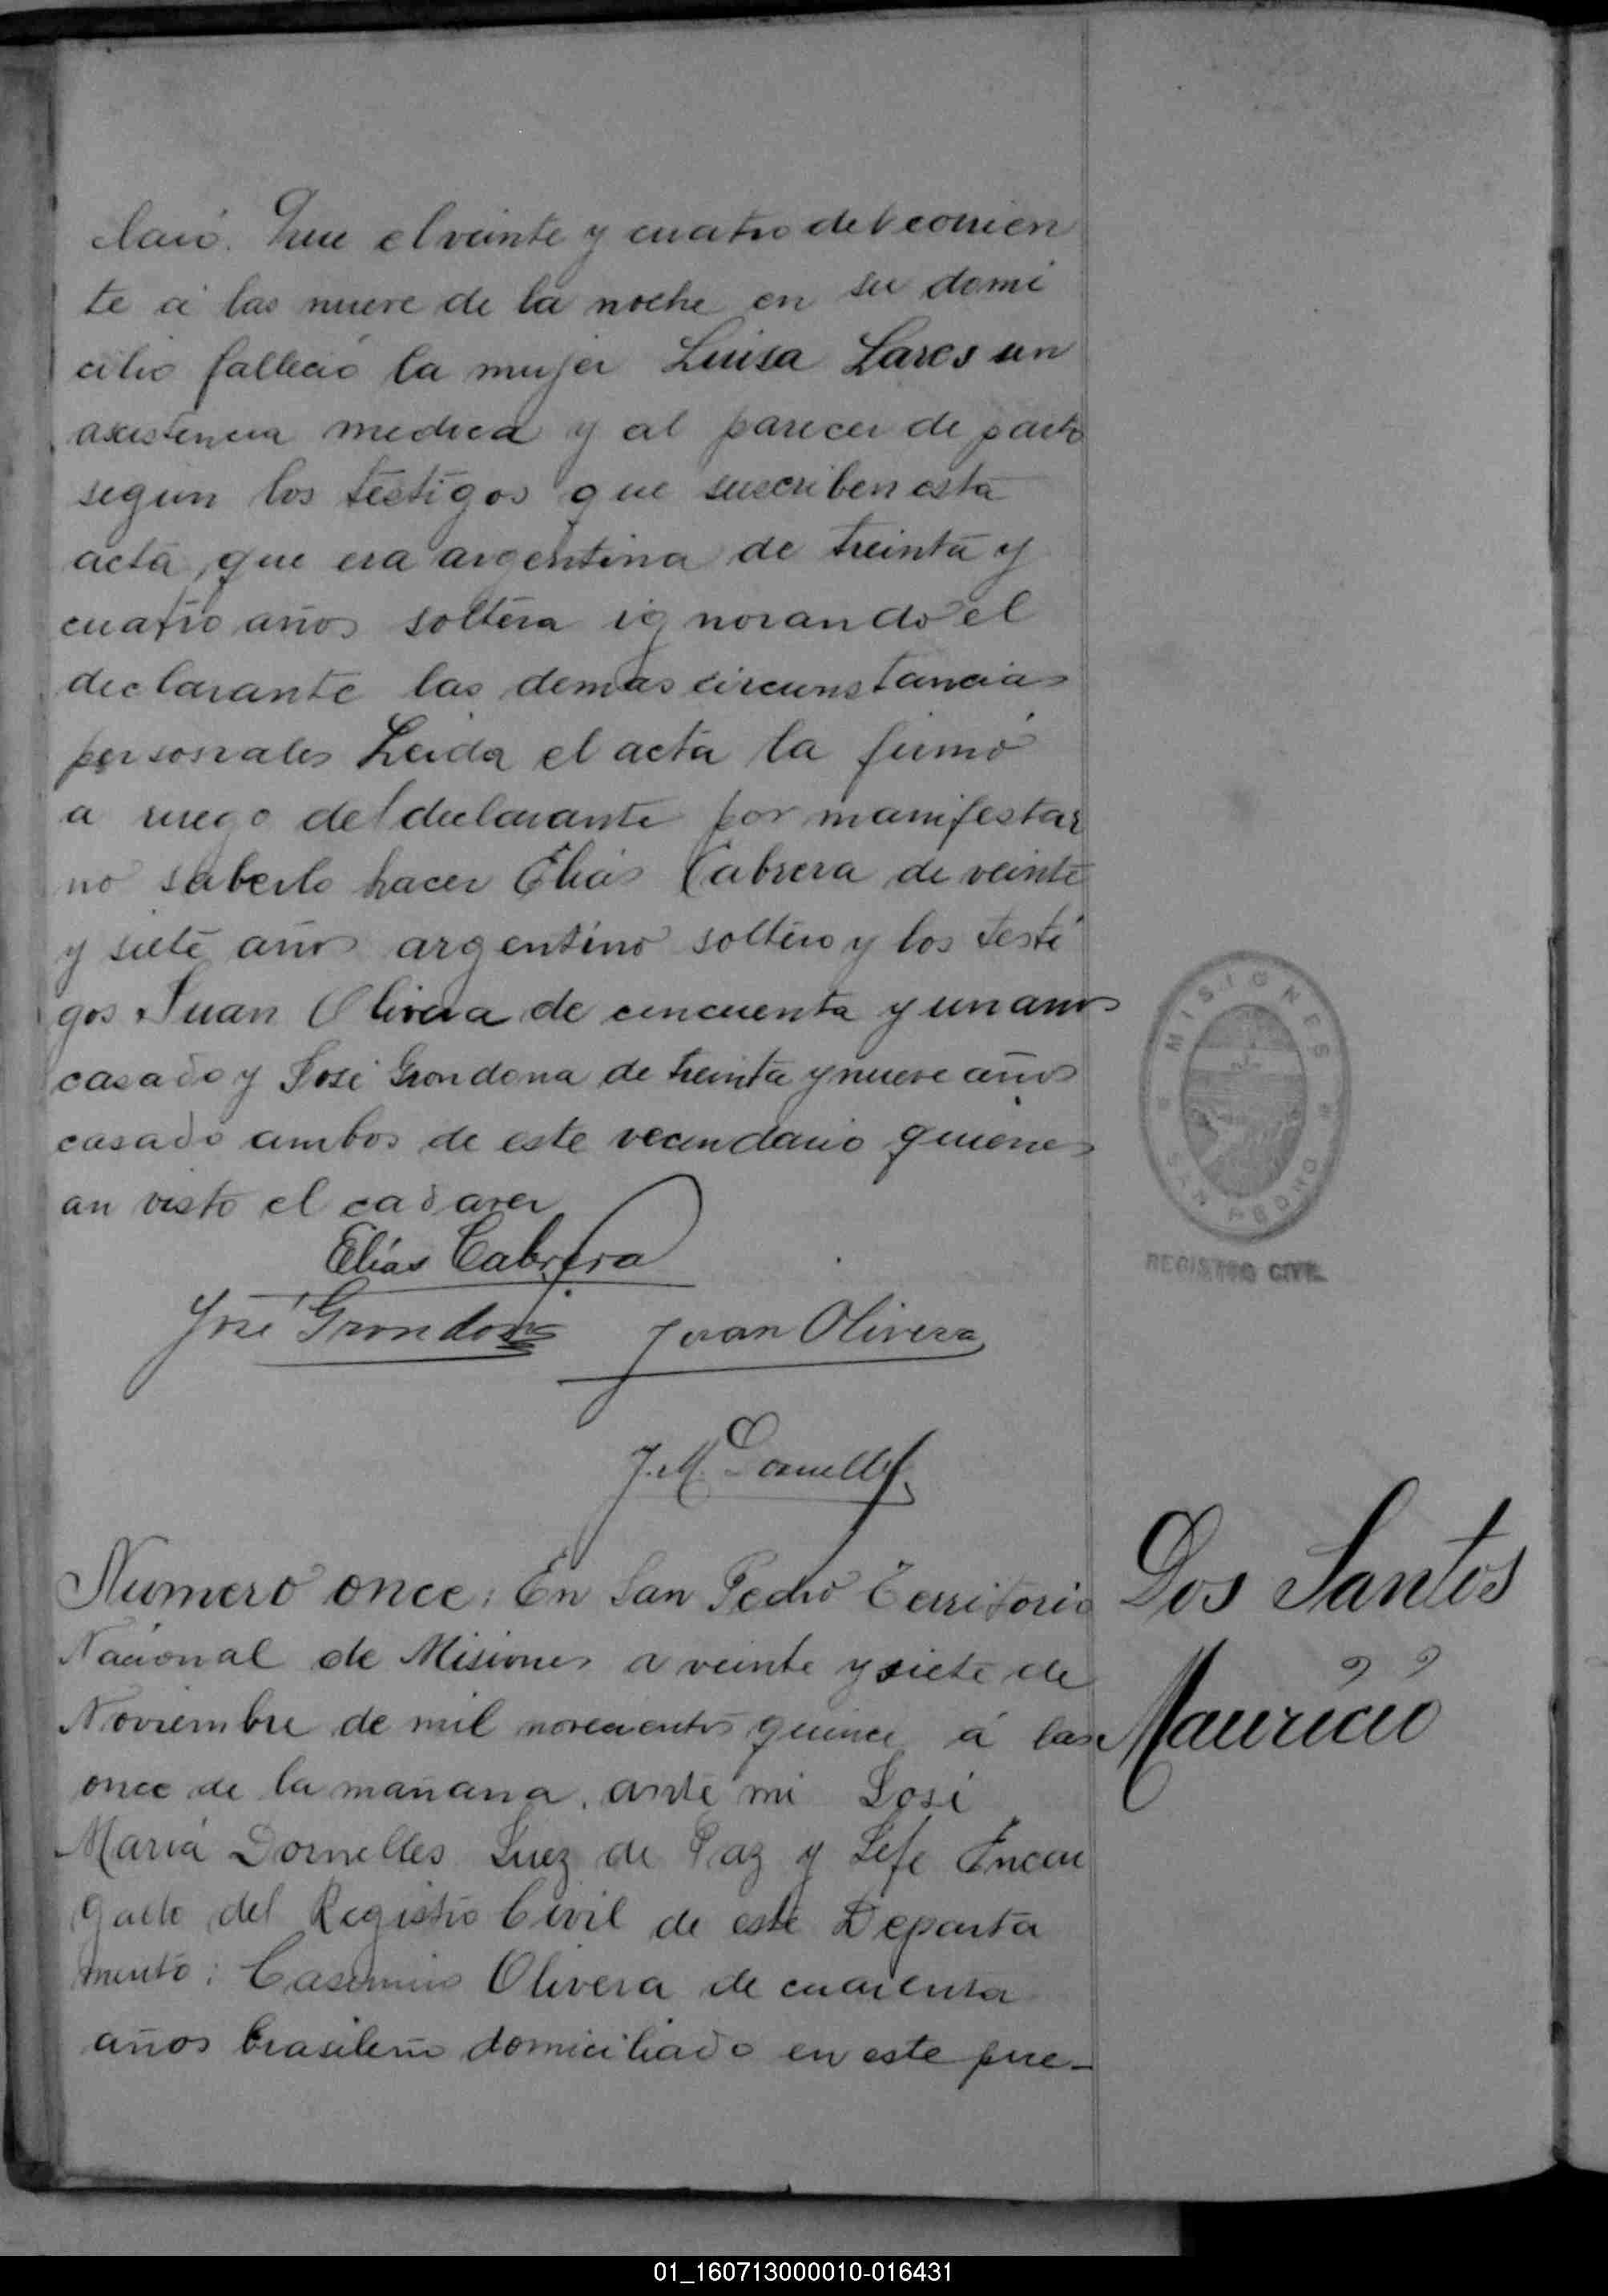 claró. Que el veinte y cuatro del corrien
te á las nueve de la noche en su domi
cilio falleció la mujer Luisa Lares sin
asistencia medica y al parecer de parto
segun los testigos que suscriben esta
acta, que era argentina de treinta y
cuatro años soltera ignorando el
declarante las demas circunstancias
personales Leida el acta la firmó
a ruego del declarante por manifestar
no saberlo hacer Elias Cabrera de veinte
y siete años argentino soltero y los testi
gos Juan Olivera de cincuenta y un años
casado y José Grondona de treinta y nueve años
casado ambos de este vecindario quienes
an visto el cadaver
Elías Cabrera
José Grondona Juan Olivera
J. M. Dornelles
MISIONES
SAN PEDRO
REGISTRO CIVIL
Numero once: En San Pedro Territorio
Nacional de Misiones a veinte y siete de
Noviembre de mil novecientos quince á las
once de la mañana, ante mi José
María Dornelles Juez de Paz y Jefe Encar
gado del Registro Civil de este Departa
mento: Casimiro Olivera de cuarenta
años brasilero domiciliado en este pue-
Dos Santos
Mauricio
01_160713000010-016431